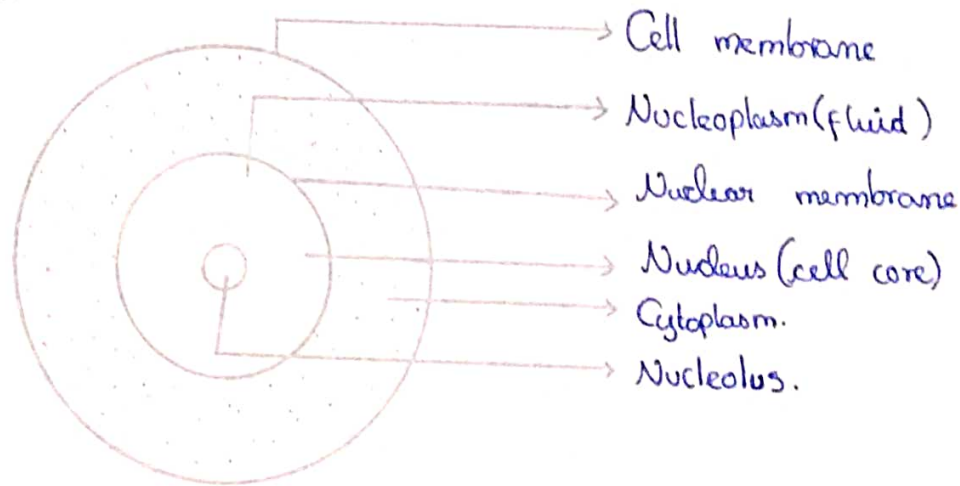 Cell membrane
Nucleoplasm (fluid)
Nuclear membrane
Nucleus (cell core)
Cytoplasm.
Nucleolus.